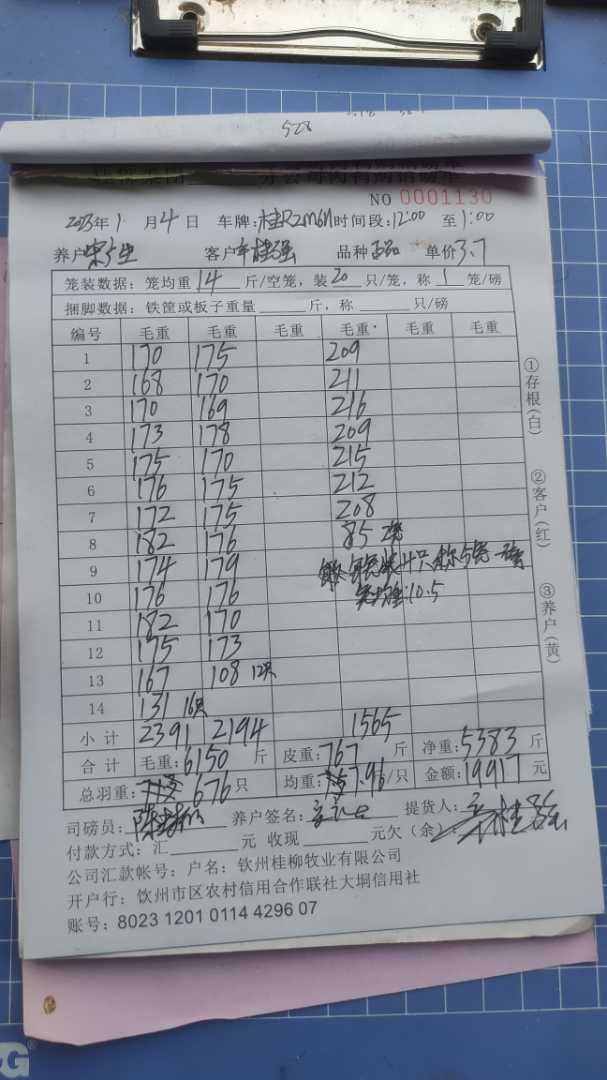 528
NO 0001130
2023年1月4日 车牌:桂R2M6N 时间段:12:00 至1:00
养户 客户 桂强 品种 单价3.7
笼装数据: 笼均重14斤/空笼, 装20只/笼, 称1笼/磅
捆脚数据: 铁筐或板子重量 斤, 称 只/磅
编号 毛重 毛重 毛重 毛重 毛重 毛重
1 170 175 209
2 168 170 211
3 170 169 216
4 173 178 209
5 175 170 215
6 176 175 212
7 172 175 208
8 182 176 85 2笼
9 174 179
10 176 176 10.5
11 182 170
12 175 173
13 167 108 12只
14 131 16只
小计 2391 2194 1565
合计 毛重:6150斤 皮重:767斤 净重:5383斤
总羽重: 676只 均重: 7.96/只 金额:19917元
司磅员: 养户签名: 提货人: 桂强
付款方式: 汇 元 收现 元欠(余)
公司汇款帐号: 户名: 钦州桂柳牧业有限公司
开户行: 钦州市区农村信用合作联社大垌信用社
账号: 8023 1201 0114 4296 07
①存根(白)
②客户(红)
③养户(黄)
G